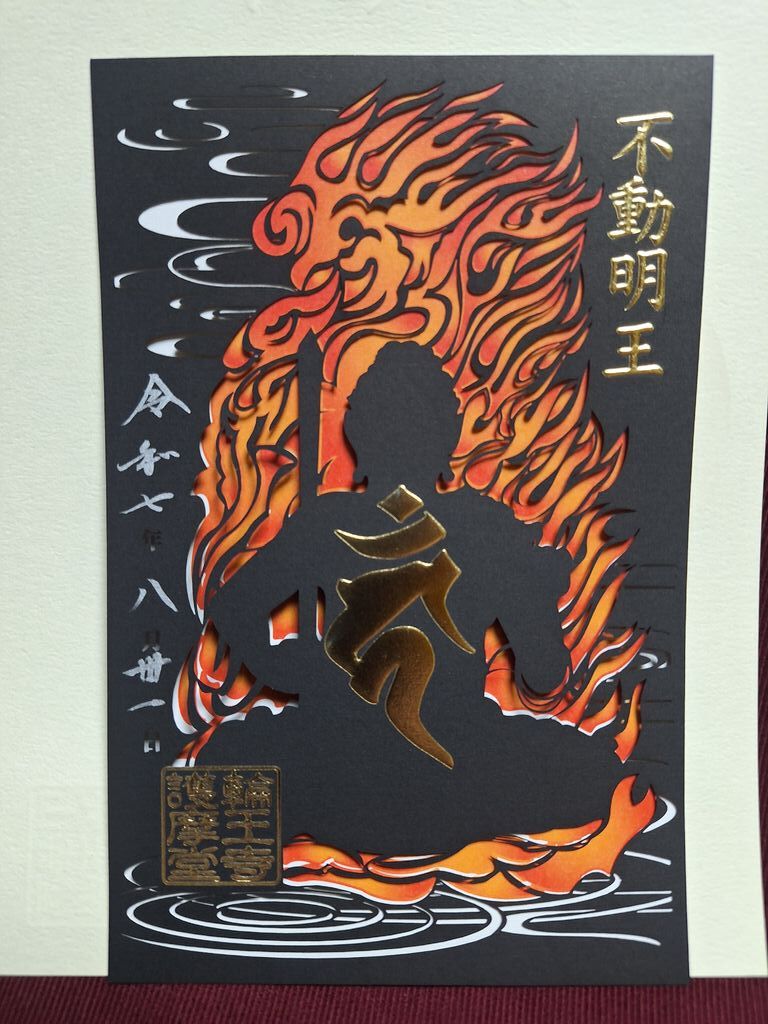 不動明王
令和七年八月卅一日
輪王寺
護摩堂